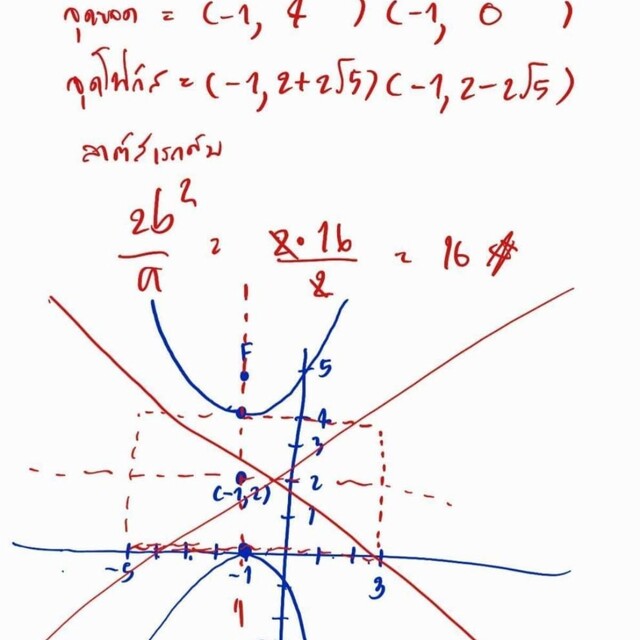 จุดยอด = (-1, 4 ) (-1, 0 )
จุดโฟกัส = (-1, 2+2√5) (-1, 2-2√5)
ลาตัสเรกตัม
2b²/a = 2·16/2 = 16 #
F
5
4
3
(-1,2) 2
1
-5 -1 3